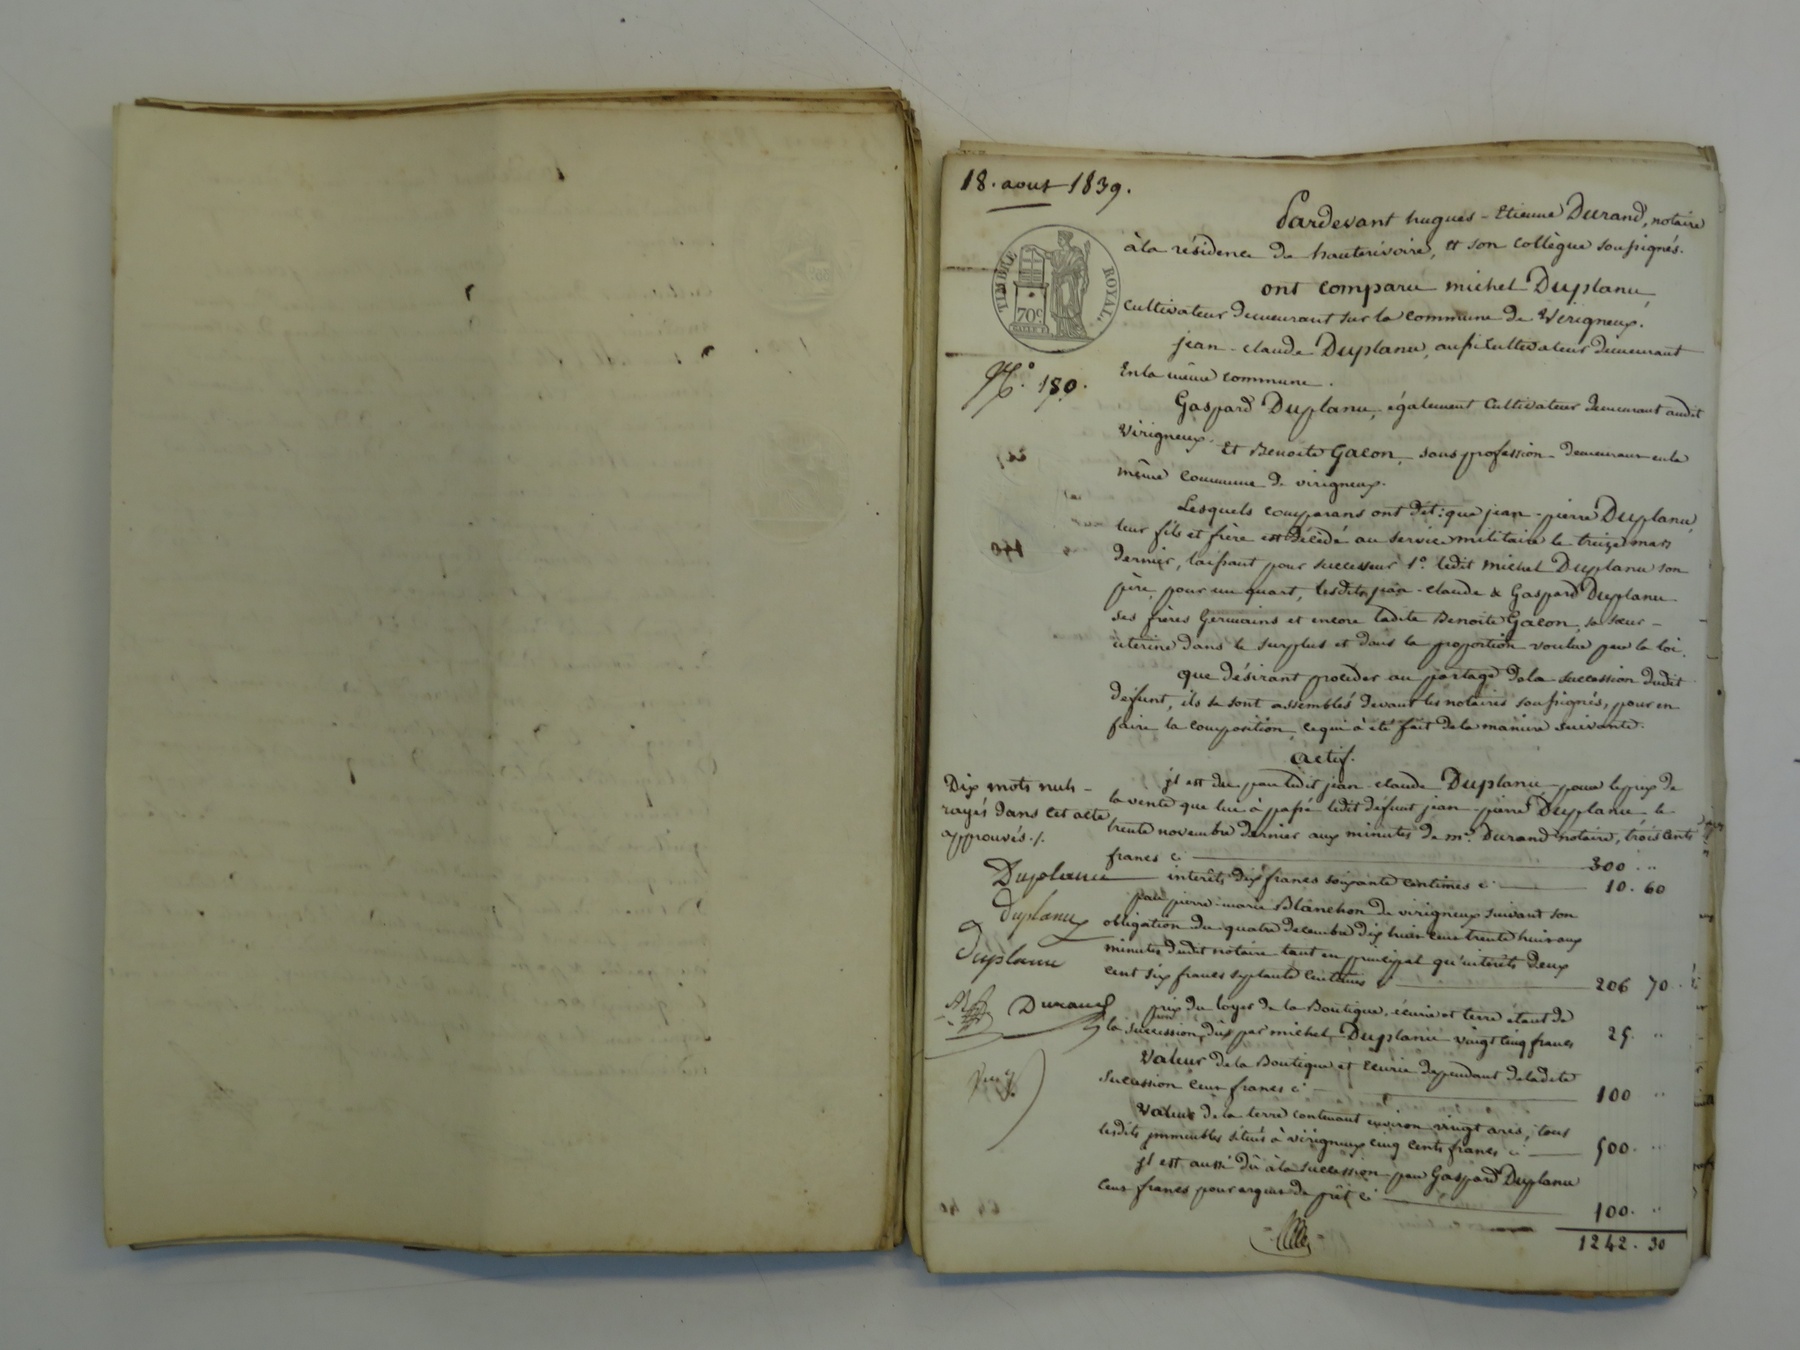 18. aout 1839.
Pardevant hugues-Etienne Durand, notaire
à la résidence de hauterivoire, et son collègue soussignés.
ont comparu michel Duplanu,
cultivateur demeurant sur la commune de Virigneux.
TIMBRE ROYAL.
70c
jean-claude Duplanu, aussi cultivateur demeurant
En la même commune.
No. 180.
Gaspard Duplanu, également cultivateur demeurant audit
Virigneux.
Et Benoite Gacon, sans profession demeurant en la
même commune de virigneux.
Lesquels comparans ont dit: que jean-pierre Duplanu,
leur fils et frère est décédé au service militaire le treize mars
dernier, laissant pour successeur 1o. ledit michel Duplanu son
père, pour un quart, lesdits jean-claude & Gaspard Duplanu
ses frères Germains et encore ladite Benoite Gacon, sa sœur
utérine dans le surplus et dans la proportion voulue par la loi.
que désirant procéder au partage de la succession dudit
défunt, ils se sont assemblés devant les notaires soussignés, pour en
faire la composition, ce qui à été fait de la manière suivante.
actif.
jl est du par ledit jean-claude Duplanu pour le prix de
la vente que lui à passé ledit défunt jean-pierre Duplanu, le
trente novembre dernier aux minutes de me. Durand notaire, trois cents
francs ci 300 "
intérêts dix francs soixante centimes ci 10. 60
par pierre-marie Blanchon de virigneux suivant son
obligation du quatre decembre dix huit cent trente huit aux
minutes dudit notaire tant en principal qu'intérêts deux
cent six francs septante centimes ci 206 70
prix du loyer de la Boutique, écurie et terre étant de
la succession, dus par michel Duplanu vingt cinq francs 25. "
Valeur de la Boutique et écurie dépendant de ladite
succession cent francs ci 100 "
Valeur de la terre contenant environ vingt ares, tous
lesdits jmmeubles situés à virigneux cinq cents francs ci 500. "
jl est aussi dû à la succession par Gaspard Duplanu
cent francs pour argent de prêt ci 100. "
1242. 30
Dix mots nuls
rayés dans cet acte
approuvés ./.
Duplanu
Duplanu
Duplanu
Durand